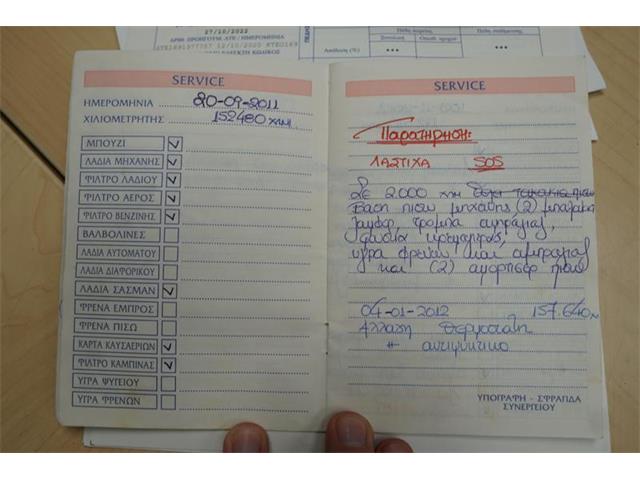 27/10/2022
ΑΡΙΘ. ΠΡΟΗΓΟΥΜ. ΔΤΕ / ΗΜΕΡΟΜΗΝΙΑ
12/10/2020
Απόδοση (%)
SERVICE
ΗΜΕΡΟΜΗΝΙΑ 20-09-2011
ΧΙΛΙΟΜΕΤΡΗΤΗΣ 152480 χλμ.
ΜΠΟΥΖΙ
ΛΑΔΙΑ ΜΗΧΑΝΗΣ
ΦΙΛΤΡΟ ΛΑΔΙΟΥ
ΦΙΛΤΡΟ ΑΕΡΟΣ
ΦΙΛΤΡΟ ΒΕΝΖΙΝΗΣ
ΒΑΛΒΟΛΙΝΕΣ
ΛΑΔΙΑ ΑΥΤΟΜΑΤΟΥ
ΛΑΔΙΑ ΔΙΑΦΟΡΙΚΟΥ
ΛΑΔΙΑ ΣΑΣΜΑΝ
ΦΡΕΝΑ ΕΜΠΡΟΣ
ΦΡΕΝΑ ΠΙΣΩ
ΚΑΡΤΑ ΚΑΥΣΑΕΡΙΩΝ
ΦΙΛΤΡΟ ΚΑΜΠΙΝΑΣ
ΥΓΡΑ ΨΥΓΕΙΟΥ
ΥΓΡΑ ΦΡΕΝΩΝ
SERVICE
Παρατήρηση:
ΛΑΣΤΙΧΑ SOS
Σε 2.000 χλμ
Βάση πίσω μηχανής (2)
υγρά φρένων και
και (2) αμορτισέρ πίσω
04-01-2012 157.640
Αλλαγή θερμοστάτη
+ αντιψυκτικο
ΥΠΟΓΡΑΦΗ - ΣΦΡΑΓΙΔΑ
ΣΥΝΕΡΓΕΙΟΥ